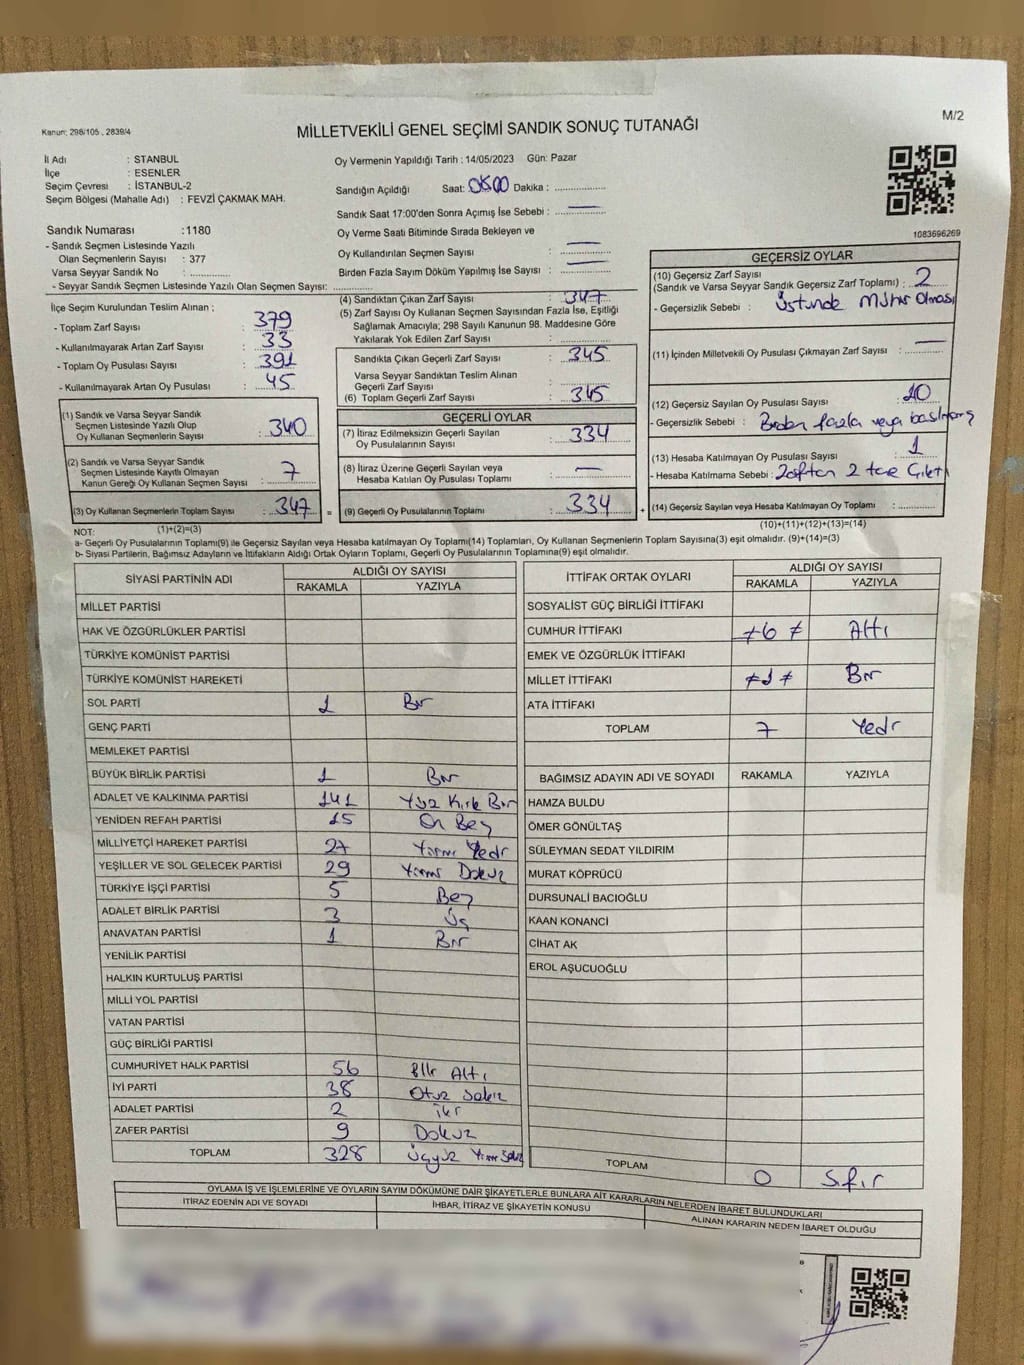 M/2
Kanun: 298/105 , 2839/4
MİLLETVEKİLİ GENEL SEÇİMİ SANDIK SONUÇ TUTANAĞI
İl Adı : STANBUL
İlçe : ESENLER
Seçim Çevresi : İSTANBUL-2
Seçim Bölgesi (Mahalle Adı) : FEVZİ ÇAKMAK MAH.
Sandık Numarası :1180
- Sandık Seçmen Listesinde Yazılı
Olan Seçmenlerin Sayısı : 377
Varsa Seyyar Sandık No : ..............
- Seyyar Sandık Seçmen Listesinde Yazılı Olan Seçmen Sayısı: ..............
Oy Vermenin Yapıldığı Tarih : 14/05/2023 Gün: Pazar
Sandığın Açıldığı Saat: 08:00 Dakika : ..............
Sandık Saat 17:00'den Sonra Açımış İse Sebebi : —
Oy Verme Saati Bitiminde Sırada Bekleyen ve
Oy Kullandırılan Seçmen Sayısı : —
Birden Fazla Sayım Döküm Yapılmış İse Sayısı : —
1083696269
İlçe Seçim Kurulundan Teslim Alınan ;
- Toplam Zarf Sayısı : 379
- Kullanılmayarak Artan Zarf Sayısı : 33
- Toplam Oy Pusulası Sayısı : 391
- Kullanılmayarak Artan Oy Pusulası : 45
(1) Sandık ve Varsa Seyyar Sandık
Seçmen Listesinde Yazılı Olup
Oy Kullanan Seçmenlerin Sayısı : 340
(2) Sandık ve Varsa Seyyar Sandık
Seçmen Listesinde Kayıtlı Olmayan
Kanun Gereği Oy Kullanan Seçmen Sayısı : 7
(3) Oy Kullanan Seçmenlerin Toplam Sayısı : 347
(1)+(2)=(3)
(4) Sandıktan Çıkan Zarf Sayısı : 347
(5) Zarf Sayısı Oy Kullanan Seçmen Sayısından Fazla İse, Eşitliği
Sağlamak Amacıyla; 298 Sayılı Kanunun 98. Maddesine Göre
Yakılarak Yok Edilen Zarf Sayısı :
Sandıkta Çıkan Geçerli Zarf Sayısı : 345
Varsa Seyyar Sandıktan Teslim Alınan
Geçerli Zarf Sayısı :
(6) Toplam Geçerli Zarf Sayısı : 345
GEÇERLİ OYLAR
(7) İtiraz Edilmeksizin Geçerli Sayılan
Oy Pusulalarının Sayısı : 334
(8) İtiraz Üzerine Geçerli Sayılan veya
Hesaba Katılan Oy Pusulası Toplamı : —
= (9) Geçerli Oy Pusulalarının Toplamı : 334
GEÇERSİZ OYLAR
(10) Geçersiz Zarf Sayısı
(Sandık ve Varsa Seyyar Sandık Geçersiz Zarf Toplamı) : 2
- Geçersizlik Sebebi : Üstünde Mühür Olması
(11) İçinden Milletvekili Oy Pusulası Çıkmayan Zarf Sayısı : —
(12) Geçersiz Sayılan Oy Pusulası Sayısı : 10
- Geçersizlik Sebebi : Birden fazla veya
(13) Hesaba Katılmayan Oy Pusulası Sayısı : 1
- Hesaba Katılmama Sebebi : Zarftan 2 tane Çıktı
+ (14) Geçersiz Sayılan veya Hesaba Katılmayan Oy Toplamı :
(10)+(11)+(12)+(13)=(14)
NOT:
a- Geçerli Oy Pusulalarının Toplamı(9) ile Geçersiz Sayılan veya Hesaba katılmayan Oy Toplamı(14) Toplamları, Oy Kullanan Seçmenlerin Toplam Sayısına(3) eşit olmalıdır. (9)+(14)=(3)
b- Siyasi Partilerin, Bağımsız Adayların ve İttifakların Aldığı Ortak Oyların Toplamı, Geçerli Oy Pusulalarının Toplamına(9) eşit olmalıdır.
SİYASİ PARTİNİN ADI ALDIĞI OY SAYISI
RAKAMLA YAZIYLA
MİLLET PARTİSİ
HAK VE ÖZGÜRLÜKLER PARTİSİ
TÜRKİYE KOMÜNİST PARTİSİ
TÜRKİYE KOMÜNİST HAREKETİ
SOL PARTİ 1 Bir
GENÇ PARTİ
MEMLEKET PARTİSİ
BÜYÜK BİRLİK PARTİSİ 1 Bir
ADALET VE KALKINMA PARTİSİ 141 Yüz Kırk Bir
YENİDEN REFAH PARTİSİ 15 On Beş
MİLLİYETÇİ HAREKET PARTİSİ 27 Yirmi Yedi
YEŞİLLER VE SOL GELECEK PARTİSİ 29 Yirmi Dokuz
TÜRKİYE İŞÇİ PARTİSİ 5 Beş
ADALET BİRLİK PARTİSİ 3 Üç
ANAVATAN PARTİSİ 1 Bir
YENİLİK PARTİSİ
HALKIN KURTULUŞ PARTİSİ
MİLLİ YOL PARTİSİ
VATAN PARTİSİ
GÜÇ BİRLİĞİ PARTİSİ
CUMHURİYET HALK PARTİSİ 56 Elli Altı
İYİ PARTİ 38 Otuz Sekiz
ADALET PARTİSİ 2 İki
ZAFER PARTİSİ 9 Dokuz
TOPLAM 328 Üçyüz Yirmi Sekiz
İTTİFAK ORTAK OYLARI ALDIĞI OY SAYISI
RAKAMLA YAZIYLA
SOSYALİST GÜÇ BİRLİĞİ İTTİFAKI
CUMHUR İTTİFAKI ≠6≠ Altı
EMEK VE ÖZGÜRLÜK İTTİFAKI
MİLLET İTTİFAKI ≠1≠ Bir
ATA İTTİFAKI
TOPLAM 7 Yedi
BAĞIMSIZ ADAYIN ADI VE SOYADI RAKAMLA YAZIYLA
HAMZA BULDU
ÖMER GÖNÜLTAŞ
SÜLEYMAN SEDAT YILDIRIM
MURAT KÖPRÜCÜ
DURSUNALİ BACIOĞLU
KAAN KONANCİ
CİHAT AK
EROL AŞUCUOĞLU
TOPLAM 0 Sıfır
OYLAMA İŞ VE İŞLEMLERİNE VE OYLARIN SAYIM DÖKÜMÜNE DAİR ŞİKAYETLERLE BUNLARA AİT KARARLARIN NELERDEN İBARET BULUNDUKLARI
İTİRAZ EDENİN ADI VE SOYADI İHBAR, İTİRAZ VE ŞİKAYETİN KONUSU ALINAN KARARIN NEDEN İBARET OLDUĞU